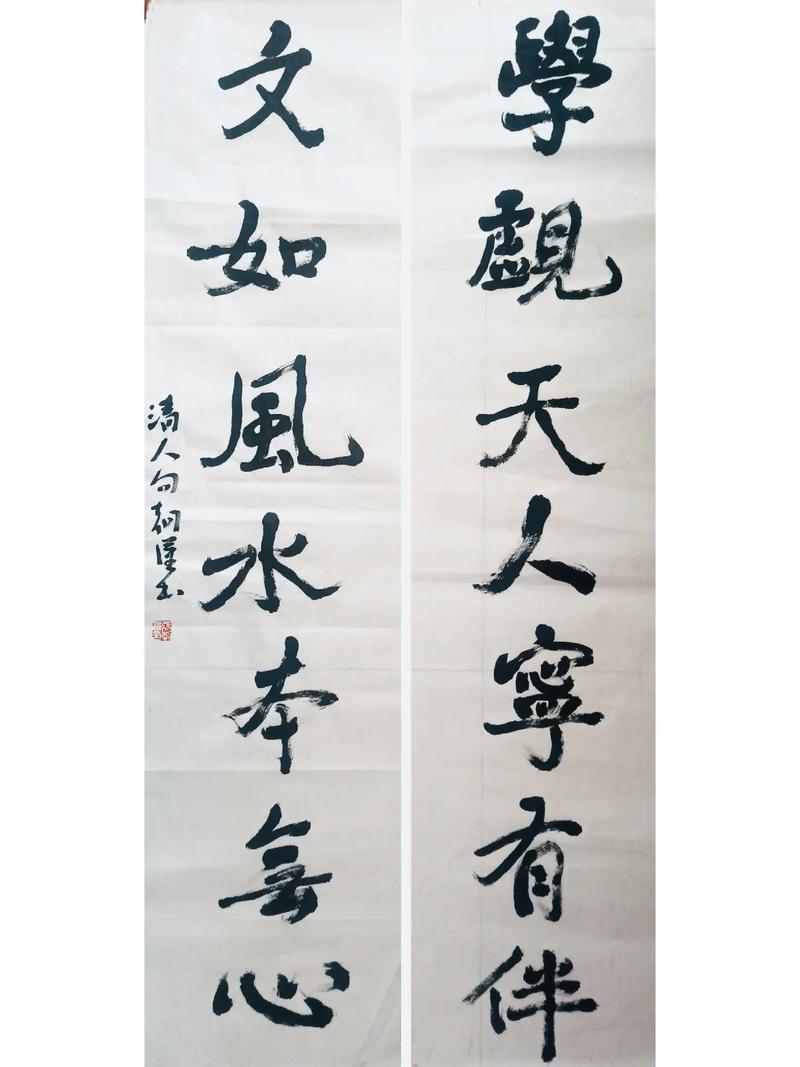 學觀天人寧有伴
文如風水本無心
清人句 朝僅书